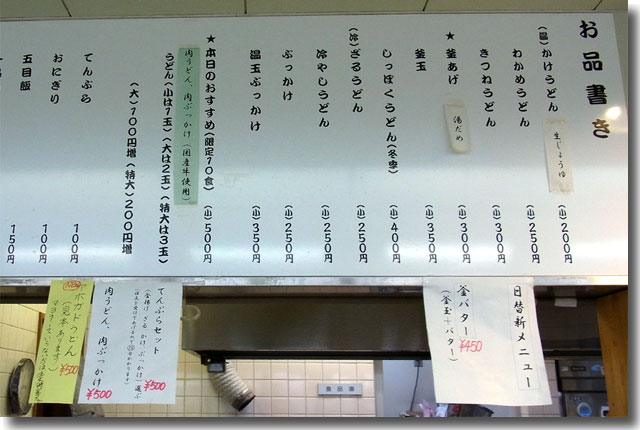 お品書き
(温)かけうどん (小)200円
生じょうゆ
わかめうどん (小)250円
きつねうどん (小)300円
★釜あげ (小)300円
湯だめ
釜玉 (小)350円
しっぽくうどん(冬季) (小)400円
(冷)ざるうどん (小)250円
冷やしうどん (小)250円
ぶっかけ (小)250円
温玉ぶっかけ (小)350円
★本日のおすすめ(限定10食) (小)500円
肉うどん、肉ぶっかけ(国産牛使用)
うどん(小は1玉)(大は2玉)(特大は3玉)
(大)100円増(特大)200円増
てんぷら 100円
おにぎり 100円
五目飯 150円
日替新メニュー
釜バター ¥450
(釜玉+バター)
てんぷらセット
(釜揚げ、ざる、かけ、ぶっかけ)選ぶ
¥500
肉うどん、肉ぶっかけ
¥500
NEW
アボカドうどん
(見本あります)
¥500
食品庫